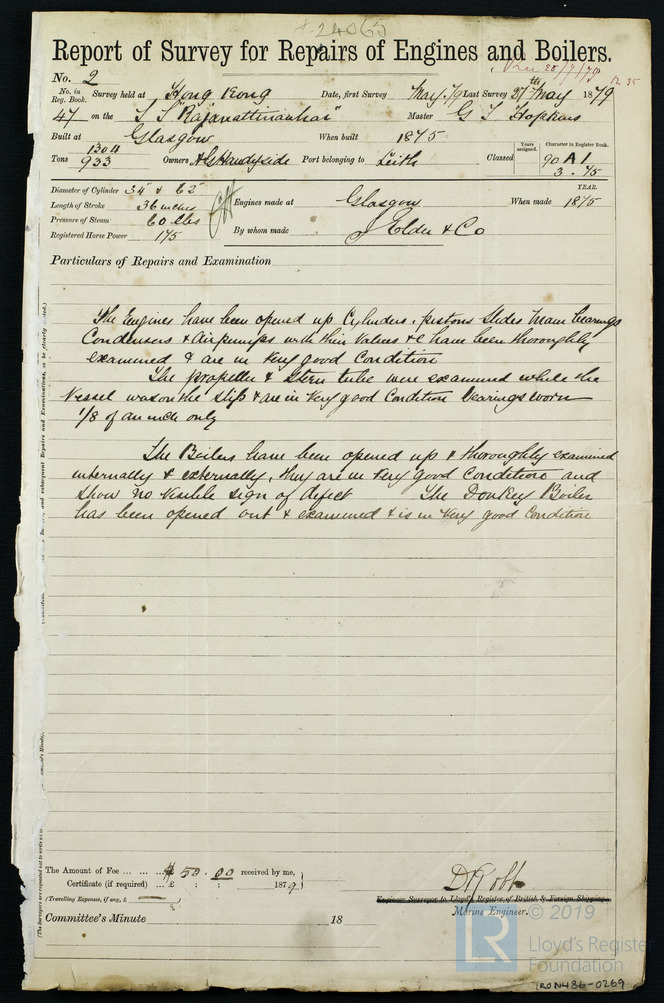 24065
Report of Survey for Repairs of Engines and Boilers.
No. 2
No. in Reg. Book. Survey held at Hong Kong Date, first Survey May /79 Last Survey 27th May 1879
47 on the S S "Rajanattianuhar" Master G T Hopkins
Built at Glasgow When built 1875
Tons 1304 933 Owners A G Handyside Port belonging to Leith Classed Years assigned. Character in Register Book. 90 A1 3.75
Diameter of Cylinder 34" & 62"
Length of Stroke 36 inches Engines made at Glasgow When made YEAR. 1875
Pressure of Steam 60 lbs
Registered Horse Power 175 By whom made J Elder & Co
Particulars of Repairs and Examination
The Engines have been opened up Cylinders, pistons Slides Main bearings
Condensers & Airpumps with their Valves &c have been thoroughly
examined & are in very good Condition
The propeller & Stern tube were examined while the
Vessel was on the slip & are in very good Condition bearings worn
1/8 of an inch only
The Boilers have been opened up & thoroughly examined
internally & externally, they are in very good Condition and
show no visible sign of defect The Donkey Boiler
has been opened out & examined & is in very good Condition
The Amount of Fee ... ... ... $ 50.00 received by me,
Certificate (if required) ... £ : : 1879
(Travelling Expenses, if any, £ )
D Robb
Engineer Surveyor to Lloyd's Register of British & Foreign Shipping.
Marine Engineer.
Committee's Minute 18
© 2019
LR
Lloyd's Register
Foundation
IRON486-0269